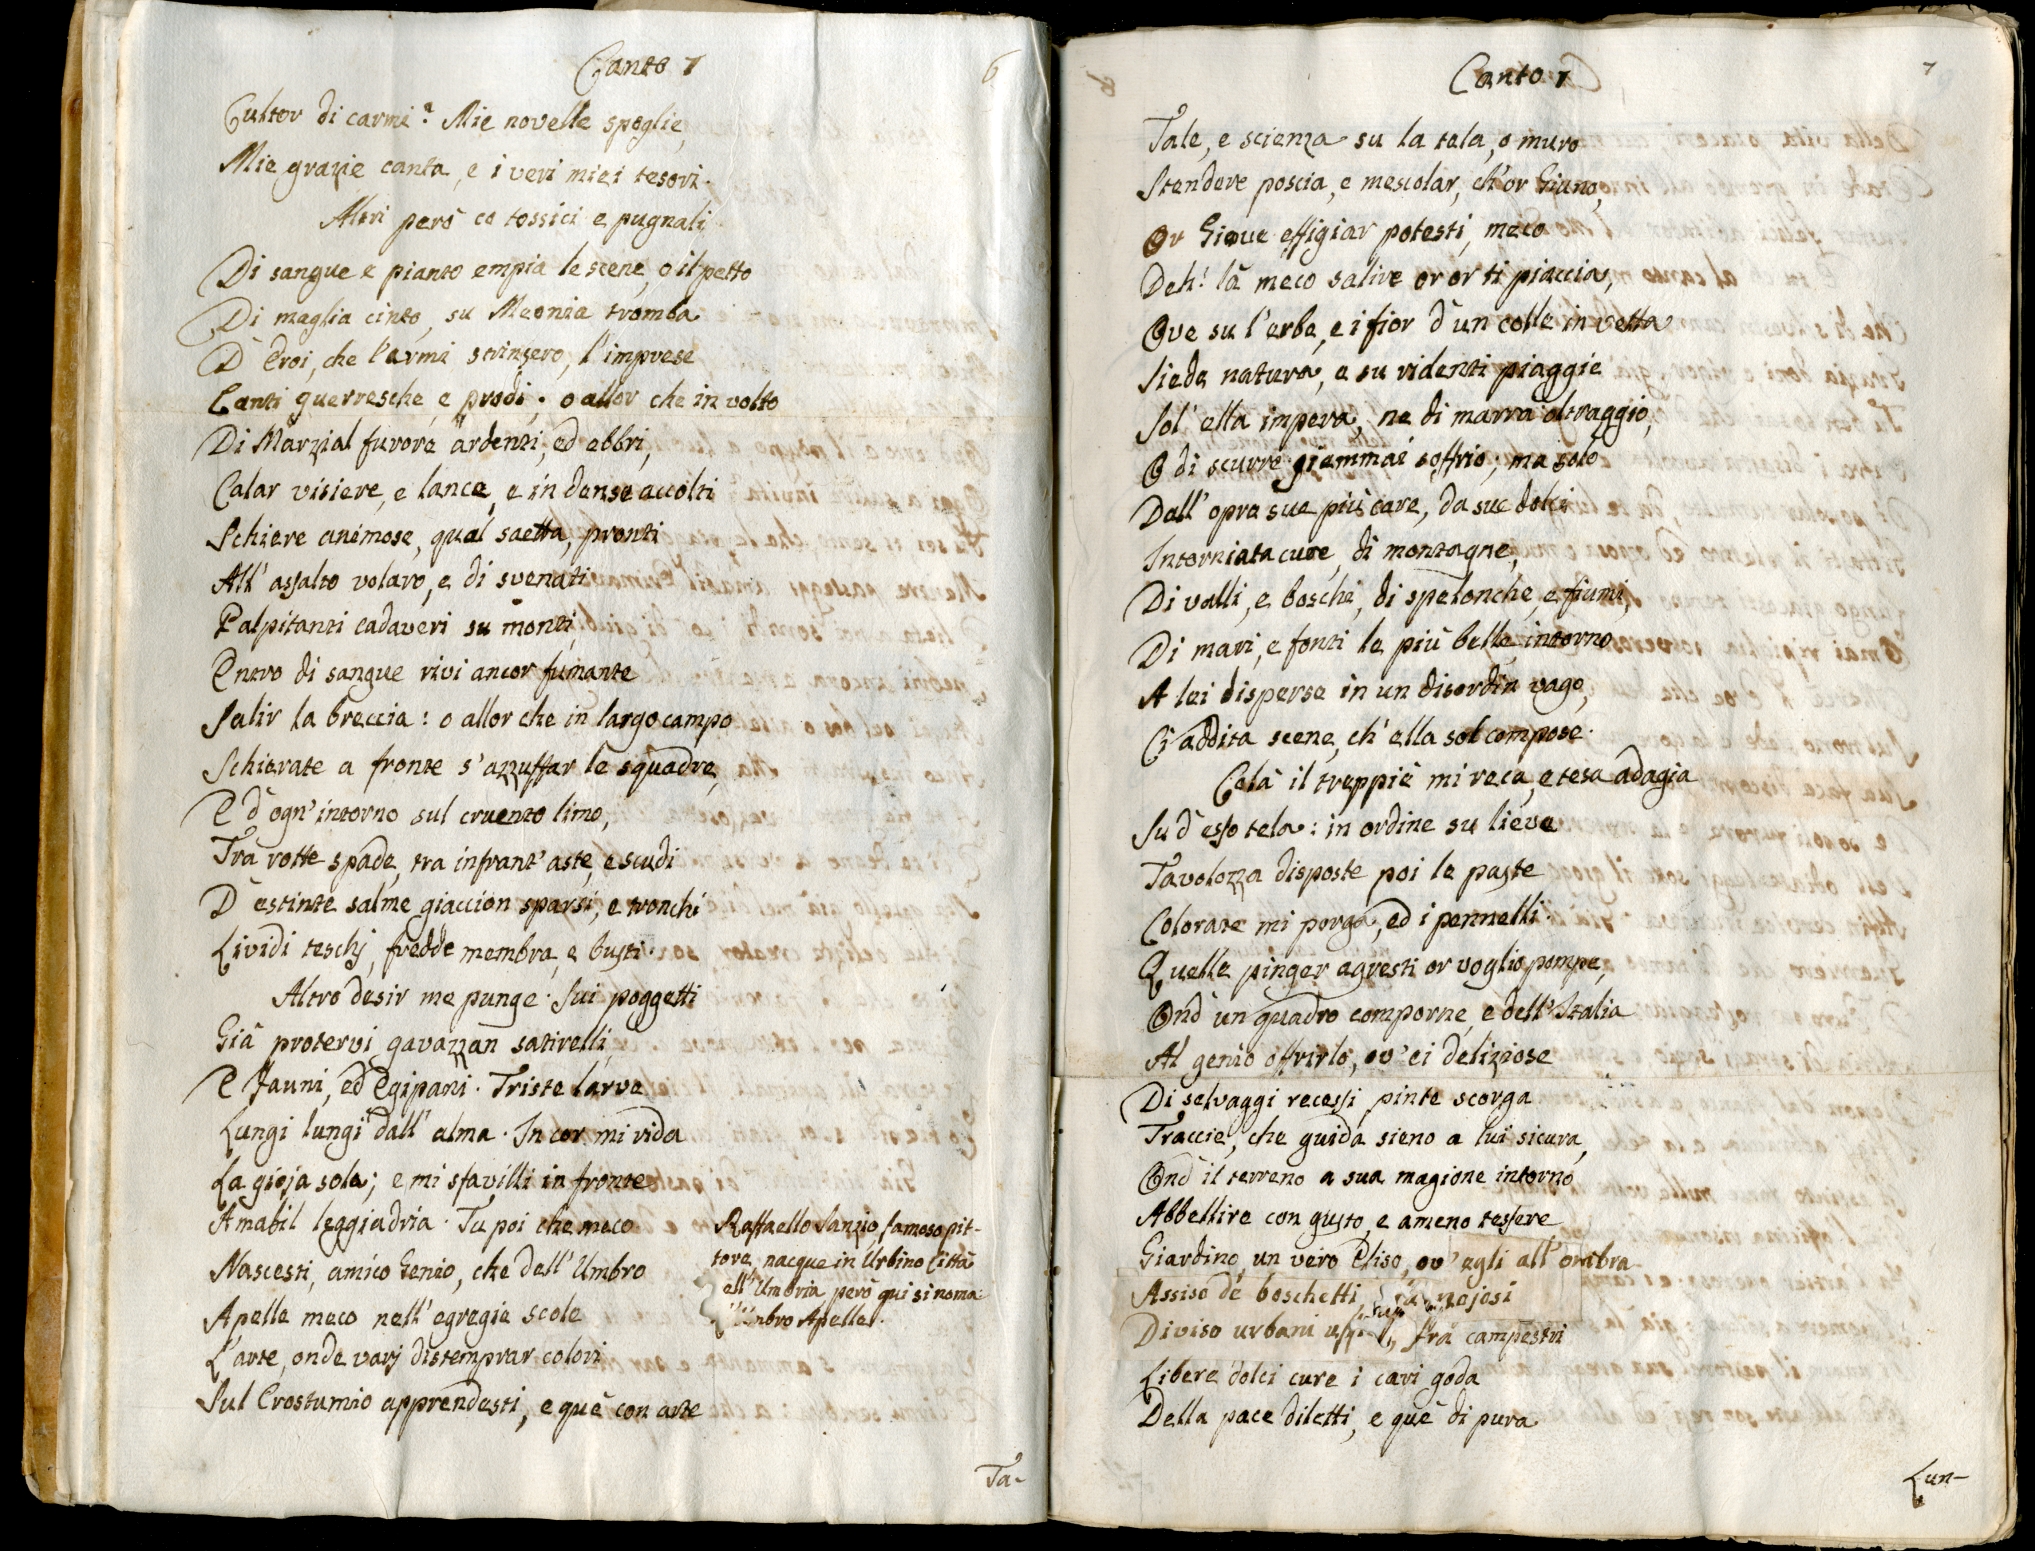 Canto 1
6
Cultor di carmi? Mie novelle spoglie,
Mie grazie canta, e i veri miei tesori.
Altri però co tossici e pugnali
Di sangue e pianto empia le scene, o il petto
Di maglia cinto, su Meonia tromba
D'Eroi, che l'armi strinsero, l'imprese
Canti guerresche, e prodi; o allor che in volto
Di Marzial furore ardenti, ed ebbri,
Calar visiere, e lance, e in dense accolti
Schiere animose, qual saetta, pronti
All' assalto volaro, e di svenati
Palpitanti cadaveri su monti,
Entro di sangue rivi ancor fumante
Salir la breccia: o allor che in largo campo
Schierate a fronte s'azzuffar le squadre,
E d'ogn'intorno sul cruento limo,
Tra rotte spade, tra infrant'aste, e scudi
D'estinte salme giaccion sparsi, e tronchi
Lividi teschj, fredde membra, e busti.
Altro desir me punge. Sui poggetti
Già protervi gavazzan satirelli,
E Fauni, ed Egipani. Triste larve
Lungi lungi dall' alma. In cor mi rida
La gioja sola; e mi sfavilli in fronte
Amabil leggiadria. Tu poi che meco
Nascesti, amico Genio, che dell' Umbro
Apelle meco nell' egregie scole
L'arte, onde varj distemprar colori
Sul Crostumio apprendesti, e què con arte
Raffaello Sanzio, famoso pit-
tore, nacque in Urbino Città
ell' Umbria però qui si noma
Umbro Apelle.
Ta-
Canto 1
7
Tale, e scienza su la tela, o muro
Stendere poscia, e mescolar, ch'or Giuno,
Or Giove effigiar potesti, meco
Deh! là meco salire or or ti piaccia,
Ove su l'erbe, e i fior d'un colle in vetta
Siede natura, e su ridenti piaggie
Sol' ella impera, ne di marra oltraggio,
O di scurre giammai soffrio; ma solo
Dall' opre sue più care, da sue dolci
Intorniata cure, di montagne,
Di valli, e boschi, di spelonche, e fiumi,
Di mari, e fonti le più belle intorno
A lei disperse in un disordin vago,
Ci addita scene, ch' ella sol compose.
Colà il treppiè mi reca, e tesa adagia
Su d'esso tela: in ordine su lieve
Tavolozza disposte poi le paste
Colorate mi porga, ed i pennelli.
Quelle pinger agresti or voglio pompe,
Ond' un quadro comporne, e dell' Italia
Al genio offrirlo, ov' ei deliziose
Di selvaggi recessi pinte scorga
Traccie, che guida sieno a lui sicura,
Ond' il terreno a sua magione intorno
Abbellire con gusto, e ameno tessere
Giardino, un vero Eliso, ov' egli all' ombra
Assiso de boschetti, nojosi
Diviso urbani fra campestri
Libere dolci cure i cari goda
Della pace diletti, e què di pura
Lun-